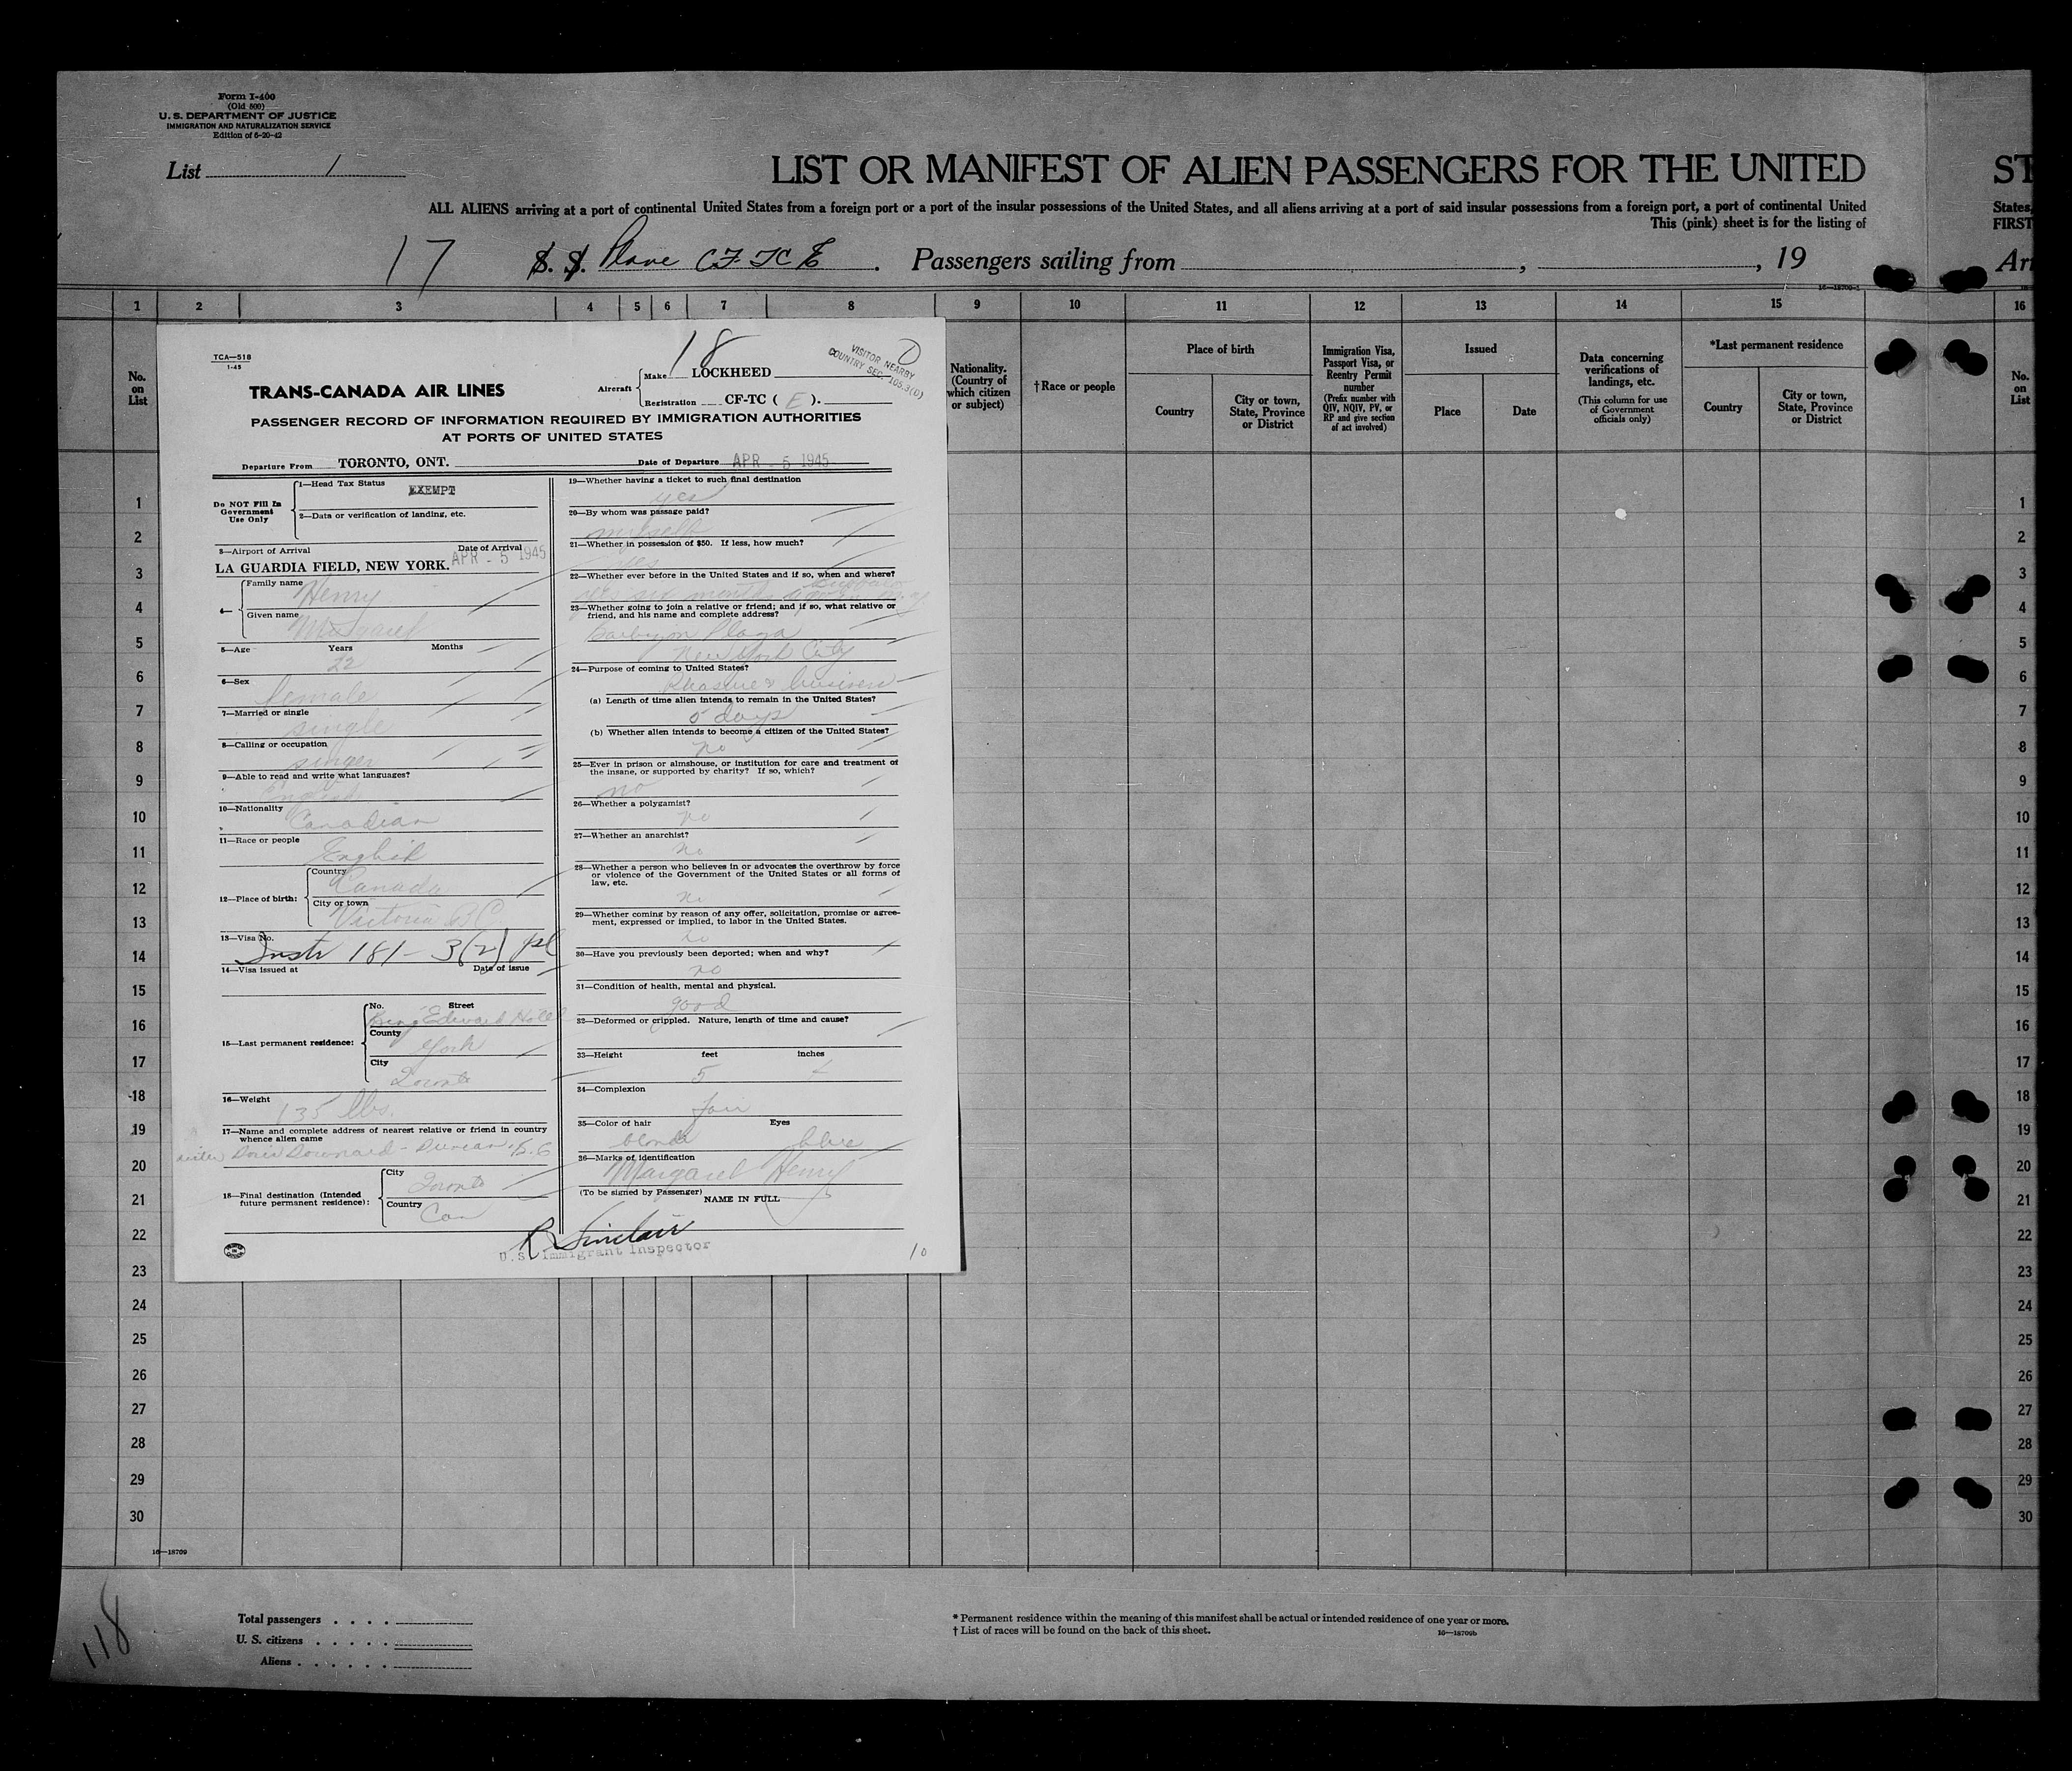 Form I-400
(Old 500)
U. S. DEPARTMENT OF JUSTICE
IMMIGRATION AND NATURALIZATION SERVICE
Edition of 6-20-42
List 1
LIST OR MANIFEST OF ALIEN PASSENGERS FOR THE UNITED
ST
ALL ALIENS arriving at a port of continental United States from a foreign port or a port of the insular possessions of the United States, and all aliens arriving at a port of said insular possessions from a foreign port, a port of continental United
States,
This (pink) sheet is for the listing of
FIRST
17 S. S. Plane CF TC E . Passengers sailing from , , 19
Arr
16—18709-1
1 2 3 4 5 6 7 8 9 10 11 12 13 14 15 16
No. on List
Nationality. (Country of which citizen or subject)
†Race or people
Place of birth
Country
City or town, State, Province or District
Immigration Visa, Passport Visa, or Reentry Permit number
(Prefix number with QIV, NQIV, PV, or RP and give section of act involved)
Issued
Place
Date
Data concerning verifications of landings, etc.
(This column for use of Government officials only)
*Last permanent residence
Country
City or town, State, Province or District
No. on List
TCA—518
1-45
18
D
VISITOR NEARBY
COUNTRY SEC. 105.3(D)
TRANS-CANADA AIR LINES
Aircraft
Make LOCKHEED
Registration CF-TC ( E ).
PASSENGER RECORD OF INFORMATION REQUIRED BY IMMIGRATION AUTHORITIES
AT PORTS OF UNITED STATES
Departure From TORONTO, ONT. Date of Departure APR - 5 1945
Do NOT Fill In Government Use Only
1—Head Tax Status EXEMPT
2—Data or verification of landing, etc.
3—Airport of Arrival Date of Arrival
LA GUARDIA FIELD, NEW YORK. APR - 5 1945
4—
Family name Henry
Given name Margaret
5—Age Years Months
22
6—Sex
female
7—Married or single
single
8—Calling or occupation
singer
9—Able to read and write what languages?
English
10—Nationality
Canadian
11—Race or people
English
12—Place of birth:
Country
Canada
City or town
Victoria B.C.
13—Visa No.
Instr 181- 3(2)
14—Visa issued at Date of issue
15—Last permanent residence:
No. Street
King Edward Hotel
County
York
City
Toronto
16—Weight
135 lbs.
17—Name and complete address of nearest relative or friend in country
whence alien came
sister Doris Downard - Duncan, B.C
18—Final destination (Intended
future permanent residence):
City
Toronto
Country
Can
19—Whether having a ticket to such final destination
yes
20—By whom was passage paid?
myself
21—Whether in possession of $50. If less, how much?
yes
22—Whether ever before in the United States and if so, when and where?
yes six months
23—Whether going to join a relative or friend; and if so, what relative or
friend, and his name and complete address?
Barbizon Plaza
New York City
24—Purpose of coming to United States?
Pleasure & business
(a) Length of time alien intends to remain in the United States?
5 days
(b) Whether alien intends to become a citizen of the United States?
no
25—Ever in prison or almshouse, or institution for care and treatment of
the insane, or supported by charity? If so, which?
no
26—Whether a polygamist?
no
27—Whether an anarchist?
no
28—Whether a person who believes in or advocates the overthrow by force
or violence of the Government of the United States or all forms of
law, etc.
no
29—Whether coming by reason of any offer, solicitation, promise or agree-
ment, expressed or implied, to labor in the United States.
no
30—Have you previously been deported; when and why?
no
31—Condition of health, mental and physical.
good
32—Deformed or crippled. Nature, length of time and cause?
33—Height feet inches
5 4
34—Complexion
fair
35—Color of hair Eyes
blonde blue
36—Marks of identification
Margaret Henry
(To be signed by Passenger) NAME IN FULL
R Sinclair
U.S. Immigrant Inspector
10
1 1
2 2
3 3
4 4
5 5
6 6
7 7
8 8
9 9
10 10
11 11
12 12
13 13
14 14
15 15
16 16
17 17
18 18
19 19
20 20
21 21
22 22
23 23
24 24
25 25
26 26
27 27
28 28
29 29
30 30
16—18709
118
Total passengers . . . .
U. S. citizens . . . . .
Aliens . . . . . .
* Permanent residence within the meaning of this manifest shall be actual or intended residence of one year or more.
† List of races will be found on the back of this sheet.
16—18709b